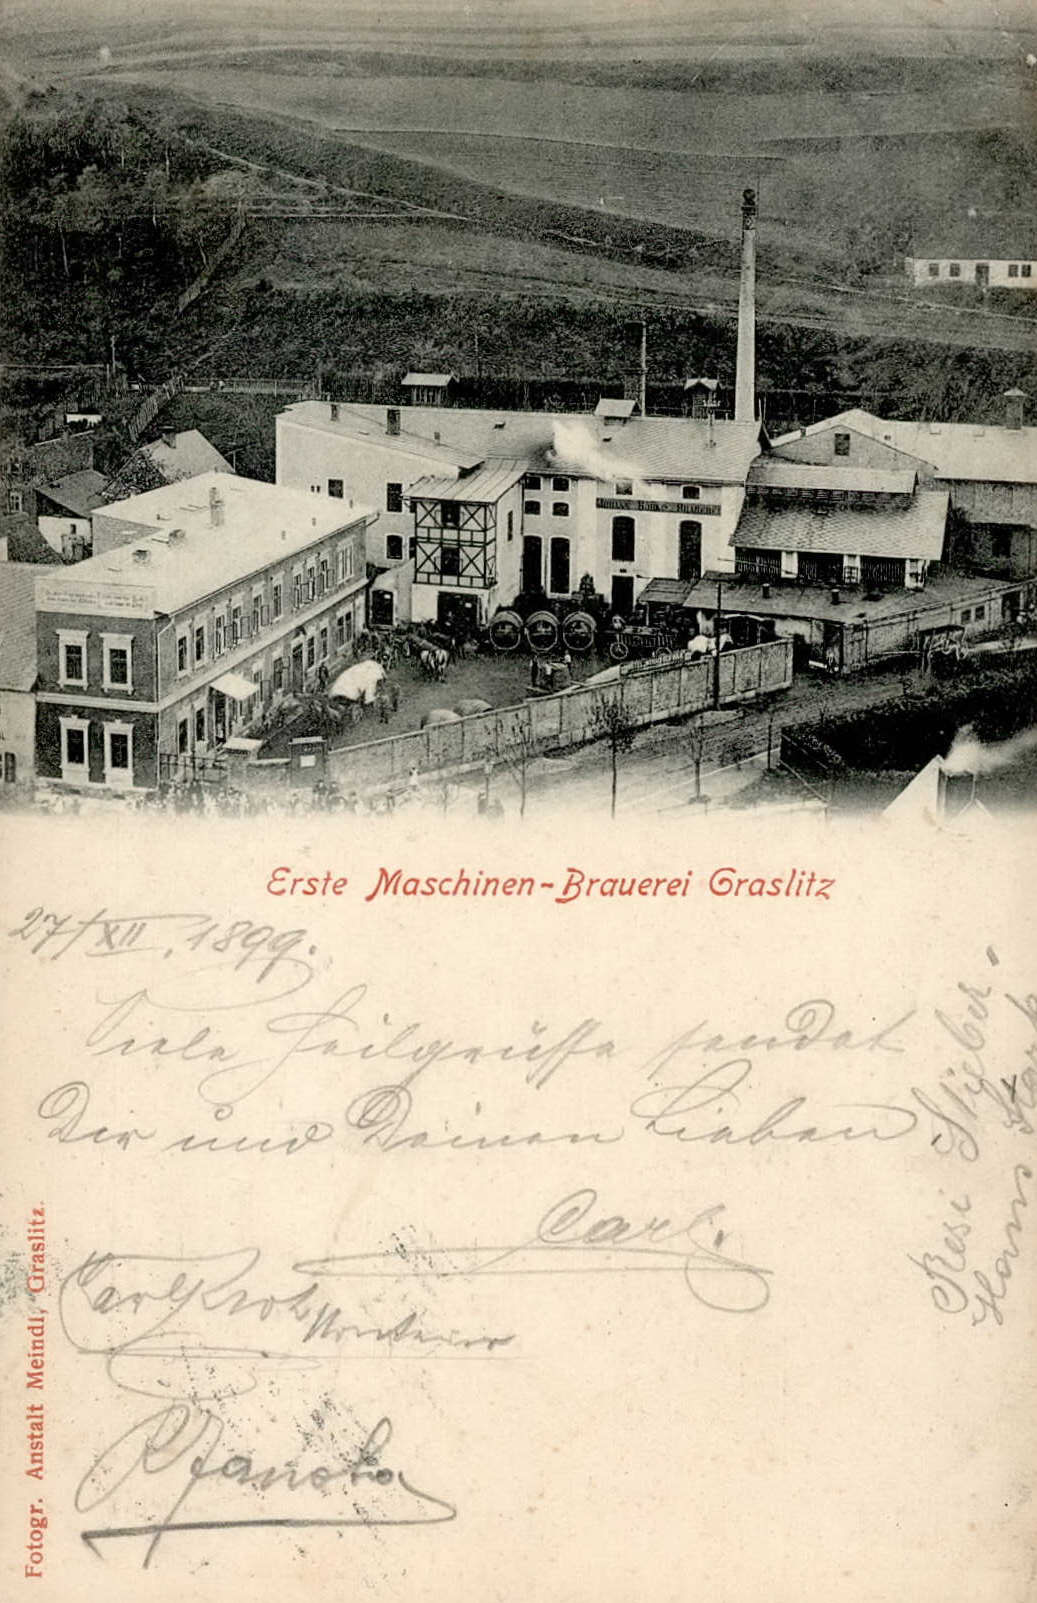 Erste Maschinen-Brauerei Graslitz
27/XII. 1899.
Viele Heilgrüsse sendet
Dir und Deinen Lieben
Carl.
Carl
Resi Stieber.
Hans
Fotogr. Anstalt Meindl, Graslitz.